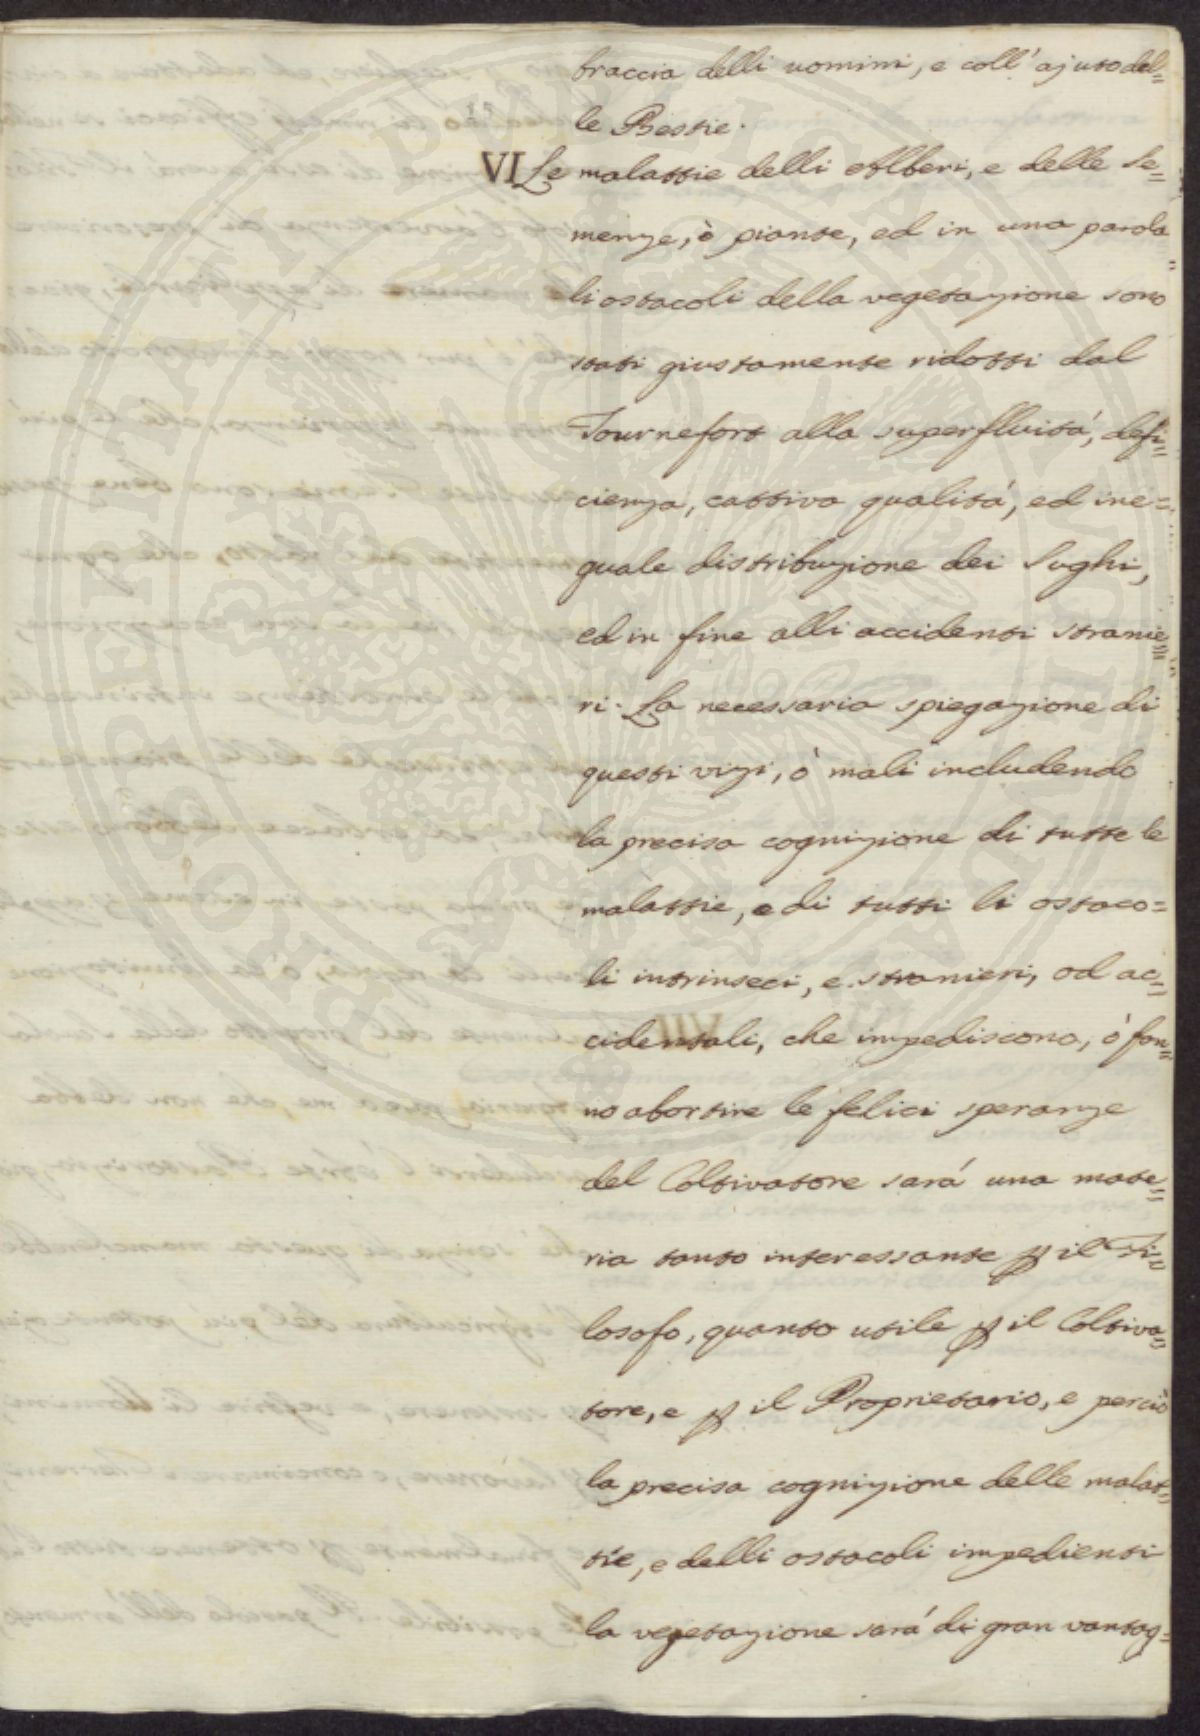 braccia delli uomini, e coll'ajuto del=
le Bestie.
VI Le malattie delli Alberi, e delle Se=
menze, ò piante, ed in una parola
li ostacoli della vegetazione sono
stati giustamente ridotti dal
Tournefort alla superfluitá, defi=
cienza, cattiva qualitá, ed ine=
guale distribuzione dei Sughi,
ed in fine alli accidenti stranie=
ri. La necessaria spiegazione di
questi vizi, ò mali includendo
la precisa cognizione di tutte le
malattie, e di tutti li ostaco=
li intrinseci, e stranieri, od ac=
cidentali, che impediscono, ò fan=
no abortire le felici speranze
del Coltivatore sará una mate=
ria tanto interessante ꝑ il Fi=
losofo, quanto utile ꝑ il Coltiva=
tore, e ꝑ il Proprietario, e perciò
la precisa cognizione delle malat=
tie, e delli ostacoli impedienti
la vegetazione sará di gran vantag=
PROSPERITATI PVBLICAE AVGENDAE